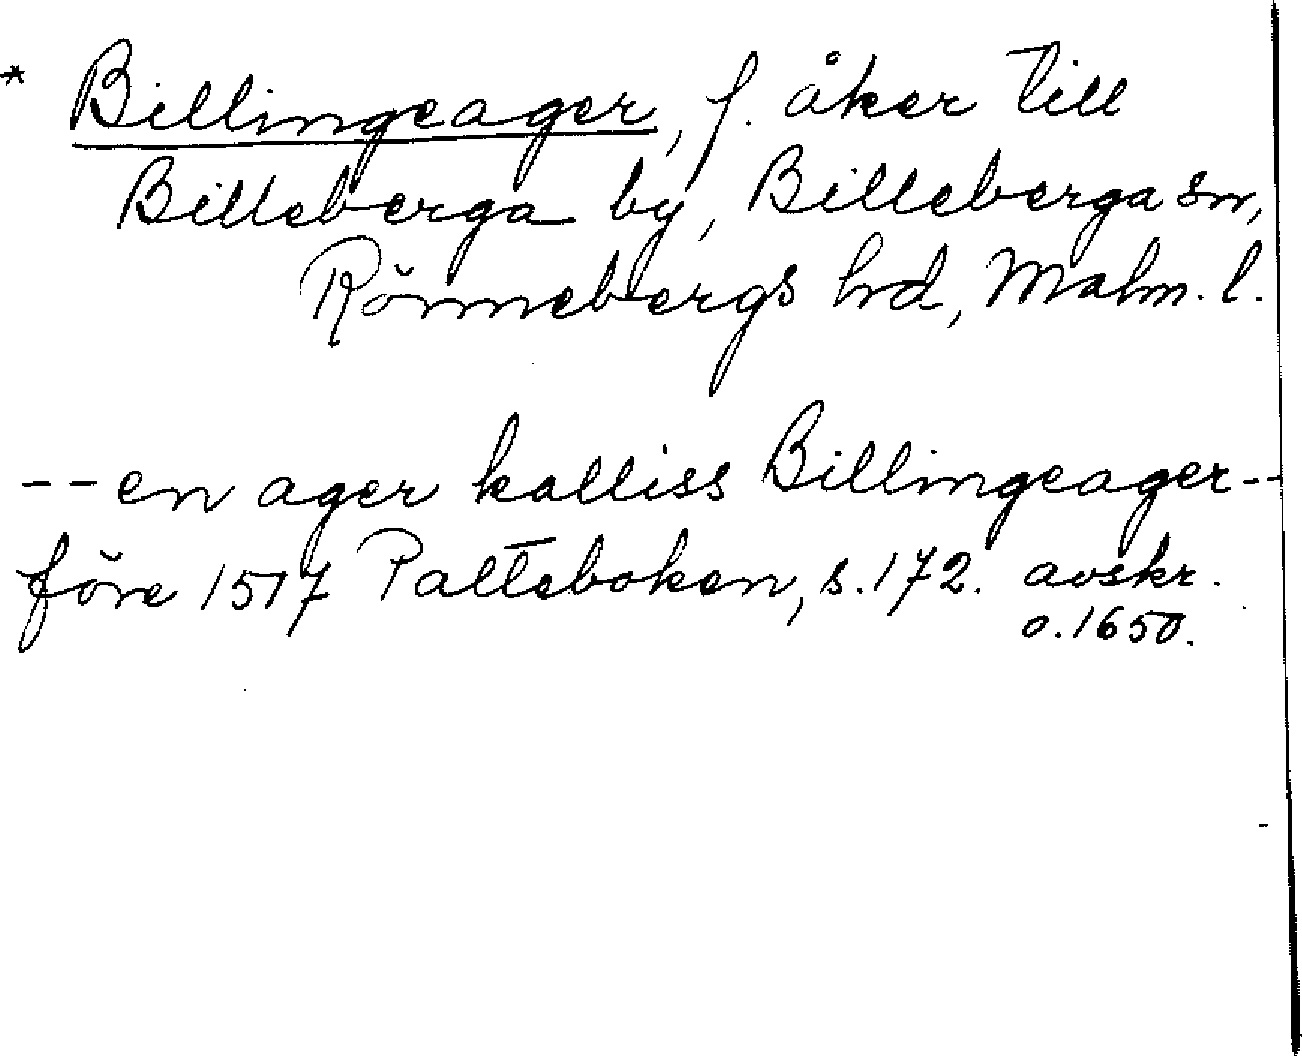 * Billingeager, f. åker till
Billeberga by, Billeberga sn,
Rönnebergs hd, Malm. l.
-- en ager kalliss Billingeager --
före 1517 Palteboken, s. 172. avskr.
o. 1650.